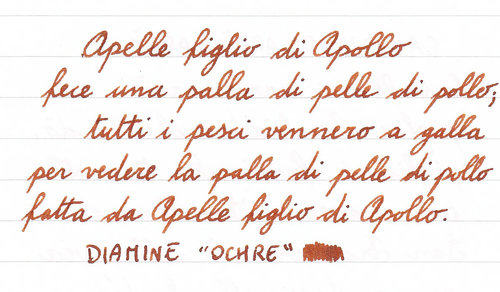 Apelle figlio di Apollo
fece una palla di pelle di pollo;
tutti i pesci vennero a galla
per vedere la palla di pelle di pollo
fatta da Apelle figlio di Apollo.
DIAMINE "OCHRE"